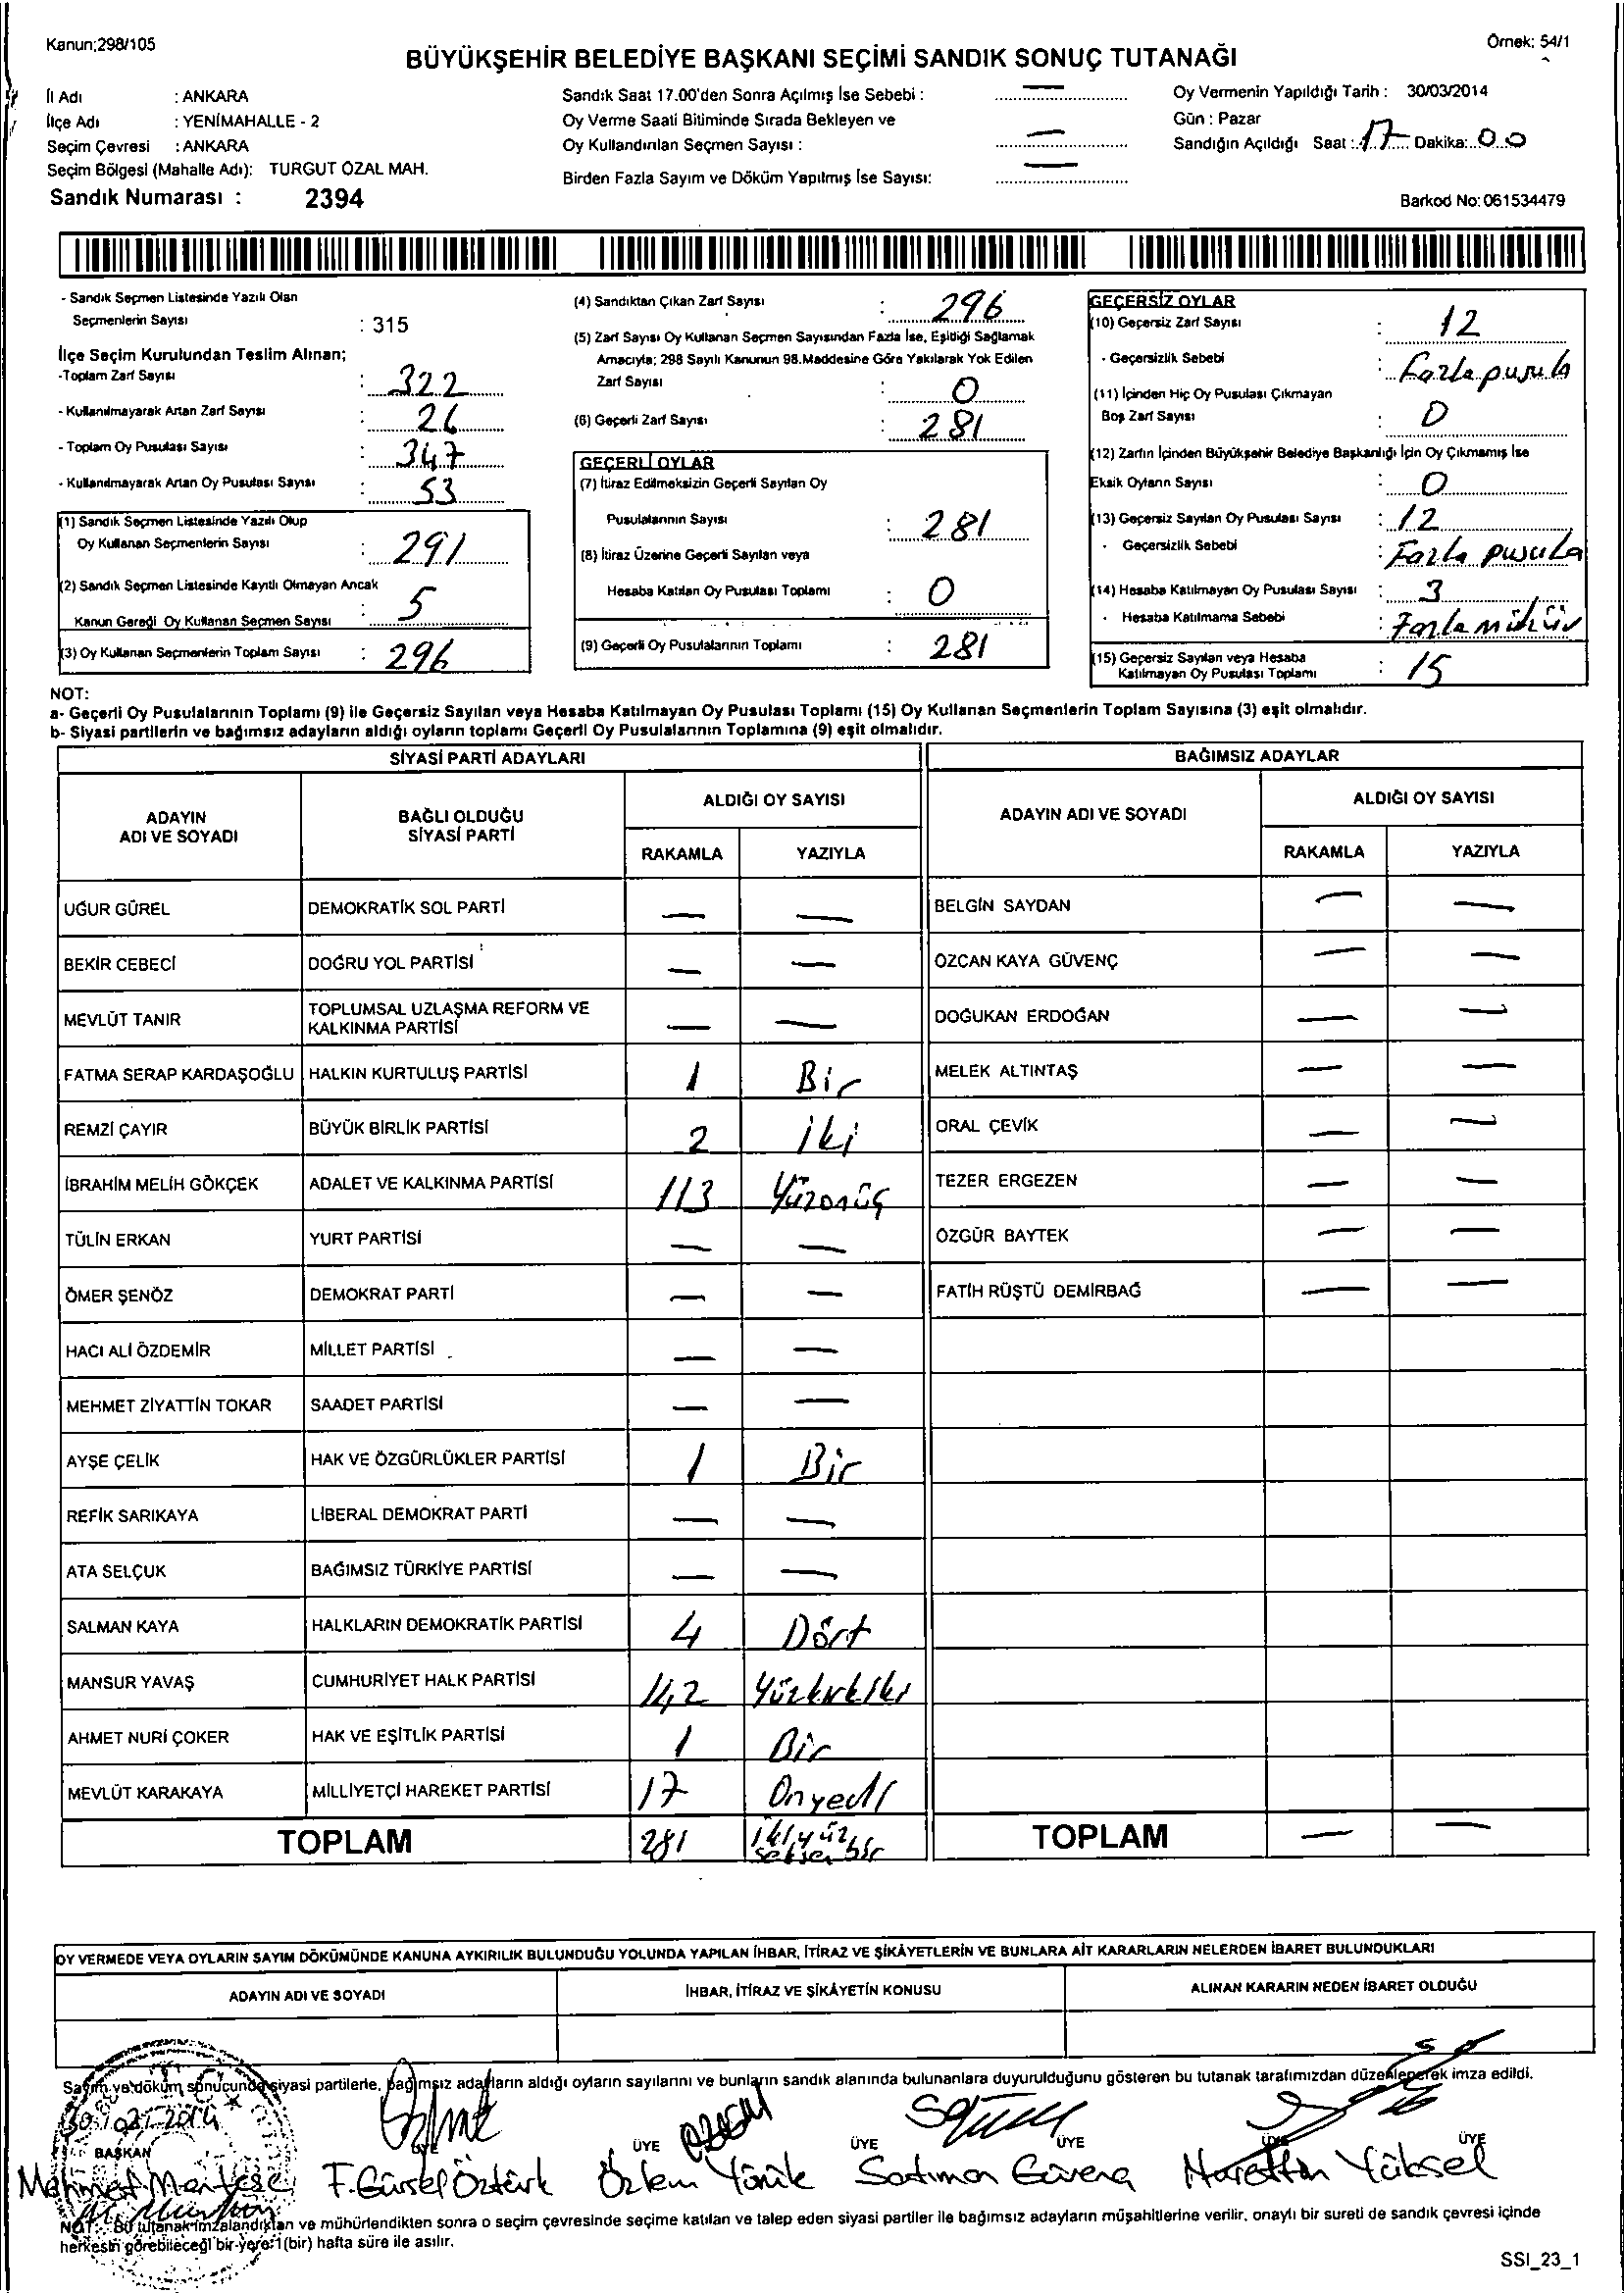 Kanun;298/105
Örnek: 54/1
BÜYÜKŞEHİR BELEDİYE BAŞKANI SEÇİMİ SANDIK SONUÇ TUTANAĞI
İl Adı : ANKARA
İlçe Adı : YENİMAHALLE - 2
Seçim Çevresi : ANKARA
Seçim Bölgesi (Mahalle Adı): TURGUT ÖZAL MAH.
Sandık Numarası : 2394
Sandık Saat 17.00'den Sonra Açılmış İse Sebebi : —
Oy Verme Saati Bitiminde Sırada Bekleyen ve
Oy Kullandırılan Seçmen Sayısı : —
Birden Fazla Sayım ve Döküm Yapılmış İse Sayısı: —
Oy Vermenin Yapıldığı Tarih : 30/03/2014
Gün : Pazar
Sandığın Açıldığı Saat : 17 Dakika: 00
Barkod No: 061534479
- Sandık Seçmen Listesinde Yazılı Olan
Seçmenlerin Sayısı : 315
İlçe Seçim Kurulundan Teslim Alınan;
-Toplam Zarf Sayısı : 322
- Kullanılmayarak Artan Zarf Sayısı : 26
- Toplam Oy Pusulası Sayısı : 347
- Kullanılmayarak Artan Oy Pusulası Sayısı : 53
(1) Sandık Seçmen Listesinde Yazılı Olup
Oy Kullanan Seçmenlerin Sayısı : 291
(2) Sandık Seçmen Listesinde Kayıtlı Olmayan Ancak
Kanun Gereği Oy Kullanan Seçmen Sayısı : 5
(3) Oy Kullanan Seçmenlerin Toplam Sayısı : 296
(4) Sandıktan Çıkan Zarf Sayısı : 296
(5) Zarf Sayısı Oy Kullanan Seçmen Sayısından Fazla İse, Eşitliği Sağlamak
Amacıyla; 298 Sayılı Kanunun 98.Maddesine Göre Yakılarak Yok Edilen
Zarf Sayısı : 0
(6) Geçerli Zarf Sayısı : 281
GEÇERLİ OYLAR
(7) İtiraz Edilmeksizin Geçerli Sayılan Oy
Pusulalarının Sayısı : 281
(8) İtiraz Üzerine Geçerli Sayılan veya
Hesaba Katılan Oy Pusulası Toplamı : 0
(9) Geçerli Oy Pusulalarının Toplamı : 281
GEÇERSİZ OYLAR
(10) Geçersiz Zarf Sayısı : 12
- Geçersizlik Sebebi : Fazla pusula
(11) İçinden Hiç Oy Pusulası Çıkmayan
Boş Zarf Sayısı : 0
(12) Zarfın İçinden Büyükşehir Belediye Başkanlığı İçin Oy Çıkmamış İse
Eksik Oyların Sayısı : 0
(13) Geçersiz Sayılan Oy Pusulası Sayısı : 12
- Geçersizlik Sebebi : Fazla pusula
(14) Hesaba Katılmayan Oy Pusulası Sayısı : 3
- Hesaba Katılmama Sebebi : Fazla mühür
(15) Geçersiz Sayılan veya Hesaba
Katılmayan Oy Pusulası Toplamı : 15
NOT:
a- Geçerli Oy Pusulalarının Toplamı (9) ile Geçersiz Sayılan veya Hesaba Katılmayan Oy Pusulası Toplamı (15) Oy Kullanan Seçmenlerin Toplam Sayısına (3) eşit olmalıdır.
b- Siyasi partilerin ve bağımsız adayların aldığı oyların toplamı Geçerli Oy Pusulalarının Toplamına (9) eşit olmalıdır.
SİYASİ PARTİ ADAYLARI
ADAYIN ADI VE SOYADI BAĞLI OLDUĞU SİYASİ PARTİ ALDIĞI OY SAYISI
RAKAMLA YAZIYLA
UĞUR GÜREL DEMOKRATİK SOL PARTİ — —
BEKİR CEBECİ DOĞRU YOL PARTİSİ — —
MEVLÜT TANIR TOPLUMSAL UZLAŞMA REFORM VE KALKINMA PARTİSİ — —
FATMA SERAP KARDAŞOĞLU HALKIN KURTULUŞ PARTİSİ 1 Bir
REMZİ ÇAYIR BÜYÜK BİRLİK PARTİSİ 2 iki
İBRAHİM MELİH GÖKÇEK ADALET VE KALKINMA PARTİSİ 113 Yüzonüç
TÜLİN ERKAN YURT PARTİSİ — —
ÖMER ŞENÖZ DEMOKRAT PARTİ — —
HACI ALİ ÖZDEMİR MİLLET PARTİSİ — —
MEHMET ZİYATTİN TOKAR SAADET PARTİSİ — —
AYŞE ÇELİK HAK VE ÖZGÜRLÜKLER PARTİSİ 1 Bir
REFİK SARIKAYA LİBERAL DEMOKRAT PARTİ — —
ATA SELÇUK BAĞIMSIZ TÜRKİYE PARTİSİ — —
SALMAN KAYA HALKLARIN DEMOKRATİK PARTİSİ 4 Dört
MANSUR YAVAŞ CUMHURİYET HALK PARTİSİ 142 Yüzkırkiki
AHMET NURİ ÇOKER HAK VE EŞİTLİK PARTİSİ 1 Bir
MEVLÜT KARAKAYA MİLLİYETÇİ HAREKET PARTİSİ 17 Onyedi
TOPLAM 281 ikiyüz seksenbir
BAĞIMSIZ ADAYLAR
ADAYIN ADI VE SOYADI ALDIĞI OY SAYISI
RAKAMLA YAZIYLA
BELGİN SAYDAN — —
ÖZCAN KAYA GÜVENÇ — —
DOĞUKAN ERDOĞAN — —
MELEK ALTINTAŞ — —
ORAL ÇEVİK — —
TEZER ERGEZEN — —
ÖZGÜR BAYTEK — —
FATİH RÜŞTÜ DEMİRBAĞ — —
TOPLAM — —
OY VERMEDE VEYA OYLARIN SAYIM DÖKÜMÜNDE KANUNA AYKIRILIK BULUNDUĞU YOLUNDA YAPILAN İHBAR, İTİRAZ VE ŞİKÂYETLERİN VE BUNLARA AİT KARARLARIN NELERDEN İBARET BULUNDUKLARI
ADAYIN ADI VE SOYADI İHBAR, İTİRAZ VE ŞİKÂYETİN KONUSU ALINAN KARARIN NEDEN İBARET OLDUĞU
Sayım ve döküm sonucunda siyasi partilerle, bağımsız adayların aldığı oyların sayılarını ve bunların sandık alanında bulunanlara duyurulduğunu gösteren bu tutanak tarafımızdan düzenlenerek imza edildi.
BAŞKAN ÜYE ÜYE ÜYE ÜYE ÜYE
Mehmet Menteşe F.Gürsel Öztürk Özlem Yörük Satıman Güvenç Nurettin Yüksel
NOT : Bu tutanak imzalandıktan ve mühürlendikten sonra o seçim çevresinde seçime katılan ve talep eden siyasi partiler ile bağımsız adayların müşahitlerine verilir, onaylı bir sureti de sandık çevresi içinde
herkesin görebileceği bir yere 1(bir) hafta süre ile asılır.
SSI_23_1